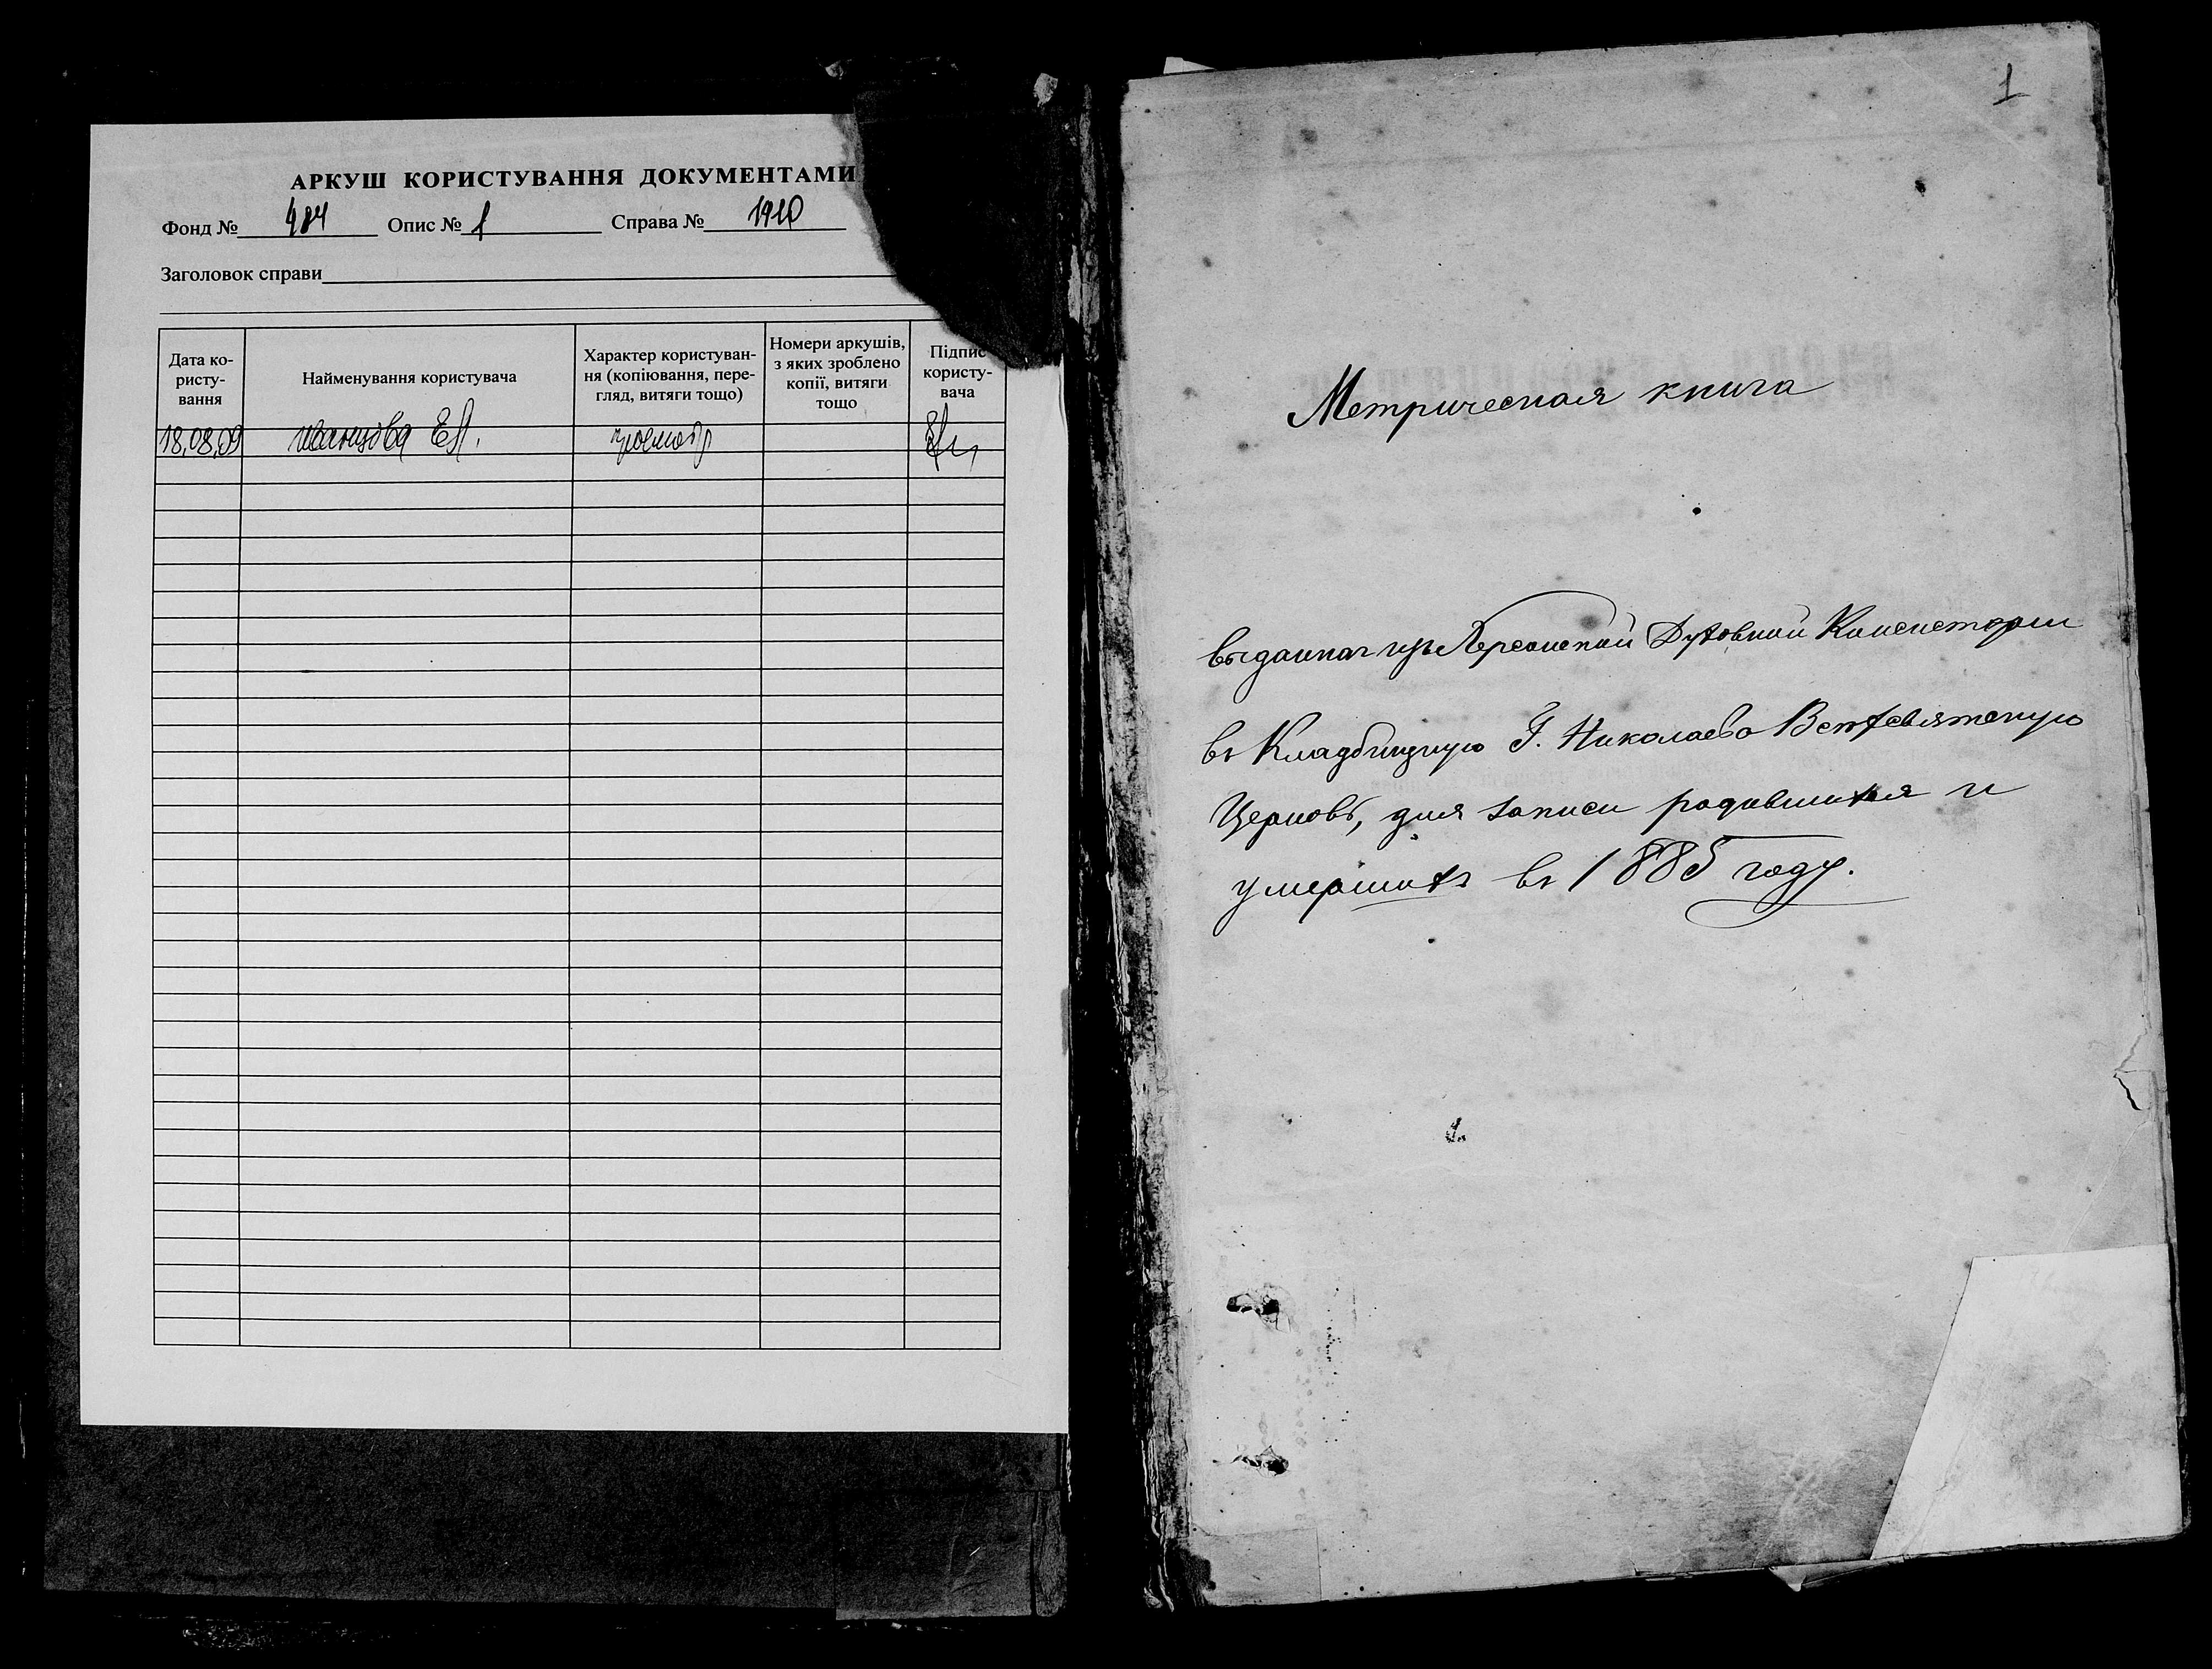 АРКУШ КОРИСТУВАННЯ ДОКУМЕНТАМИ
Фонд № 484 Опис № 1 Справа № 1910
Заголовок справи
Дата ко-
ристу-
вання
Найменування користувача
Характер користуван-
ня (копіювання, пере-
гляд, витяги тощо)
Номери аркушів,
з яких зроблено
копії, витяги
тощо
Підпис
користу-
вача
18.08.09 Иванцова просмотр
1
Метрическая книга
выданная изъ Херсонской Духовной Консистории
въ Кладбищную Г. Николаева Всехсвятскую
Церковь, для записи родившихся и
умершихъ въ 1885 году.